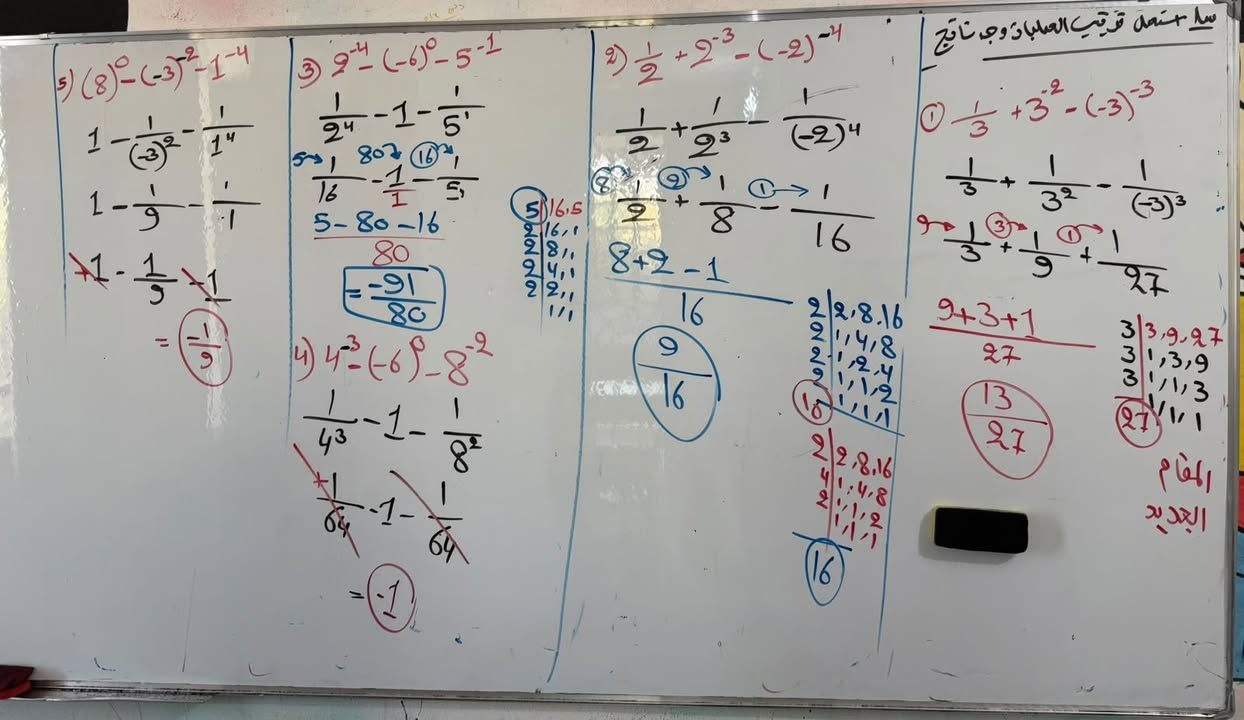 س١/ استعمل ترتيب العمليات وجد ناتج
① 1/3 + 3⁻² - (-3)⁻³
1/3 + 1/3² - 1/(-3)³
9→ 1/3 + ③→ 1/9 + ①→ 1/27
9+3+1
27
13/27
3 | 3, 9, 27
3 | 1, 3, 9
3 | 1, 1, 3
27 | 1, 1, 1
المقام
الجديد
2) 1/2 + 2⁻³ - (-2)⁻⁴
1/2 + 1/2³ - 1/(-2)⁴
⑧→ 1/2 + ②→ 1/8 - ①→ 1/16
8+2-1
16
9/16
2 | 2, 8, 16
2 | 1, 4, 8
2 | 1, 2, 4
2 | 1, 1, 2
16 | 1, 1, 1
2 | 2, 8, 16
4 | 1, 4, 8
2 | 1, 1, 2
1, 1, 1
16
3) 2⁻⁴ - (-6)⁰ - 5⁻¹
1/2⁴ - 1 - 1/5¹
5→ 1/16 80→ - 1/1 ⑯→ - 1/5
5-80-16
80
= -91/80
5 | 16, 5
2 | 16, 1
2 | 8, 1
2 | 4, 1
2 | 2, 1
1, 1
4) 4⁻³ - (-6)⁰ - 8⁻²
1/4³ - 1 - 1/8²
+1/64 - 1 - 1/64
= -1
5) (8)⁰ - (-3)⁻² - 1⁻⁴
1 - 1/(-3)² - 1/1⁴
1 - 1/9 - 1/1
+1 - 1/9 - 1
= -1/9